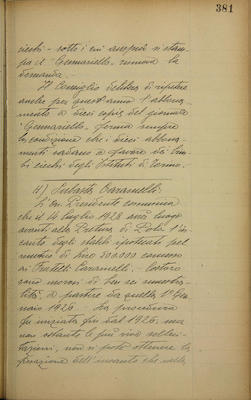 381
ciechi - sotto i cui auspici si stam-
pa il "Gennariello", rinnova la
domanda.
Il Consiglio delibera di ripetere
anche per quest'anno l'abbona-
mento a dieci copie del giornale
"Gennariello", ferma sempre
la condizione che i dieci abbona-
menti vadano a favore dei bim-
bi ciechi degli Istituti di Torino.
4) Subasta Caramelli:
L'On. Presidente comunica
che il 14 luglio 1928 avrà luogo
avanti alla Pretura di l'in-
canto degli stabili ipotecati pel
mutuo di lire 300.000 concesso
ai Fratelli Caramelli. Costoro
sono morosi di ben sei semestra-
lità, a partire da quella 1° Gen-
naio 1926. La procedura
fu iniziata fin dal 1926, ma
non ostante le più vive solleci-
tazioni, non si poté ottenere la
fissazione dell'incanto che nella